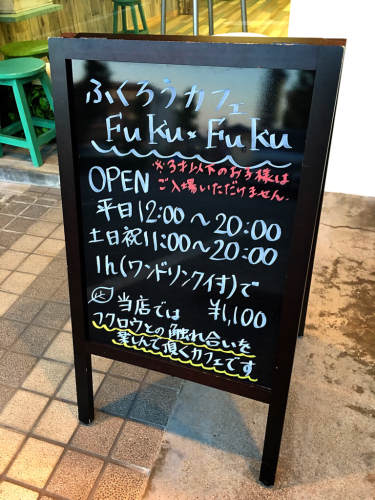 ふくろうカフェ
Fuku×Fuku
OPEN
※3才以下のお子様は
ご入場いただけません.
平日12:00〜20:00
土日祝11:00〜20:00
1h(ワンドリンク付)で
¥1,100
当店では
フクロウとの触れ合いを
楽しんで頂くカフェです